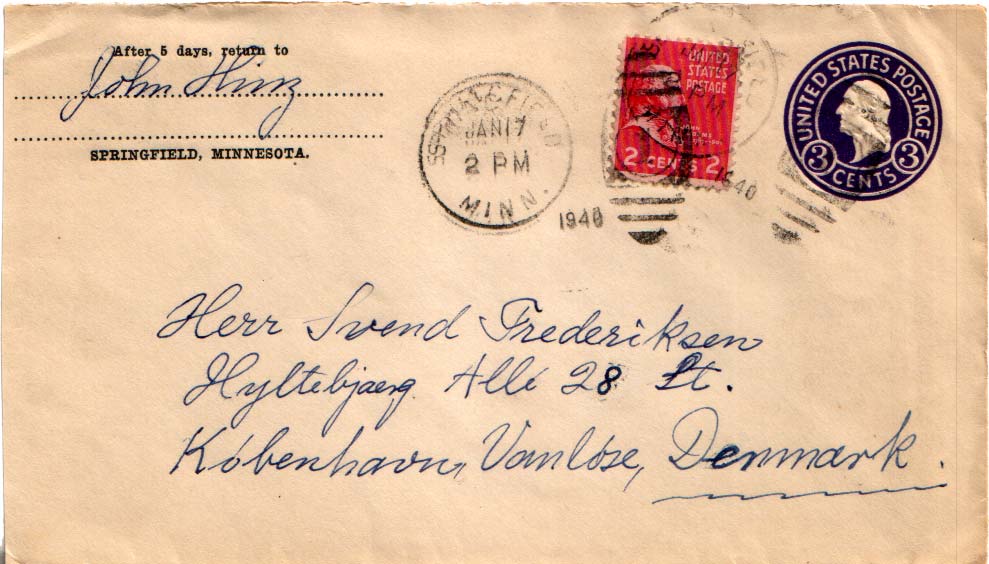 After 5 days, return to
John Hinz
SPRINGFIELD, MINNESOTA.
JAN 17
2 PM
MINN.
1940
UNITED
STATES
POSTAGE
JOHN
2 CENTS 2
1940
UNITED STATES POSTAGE
3 CENTS 3
Herr Svend Frederiksen
Hyltebjaerg Allé 28 St.
København, Vanløse, Denmark.